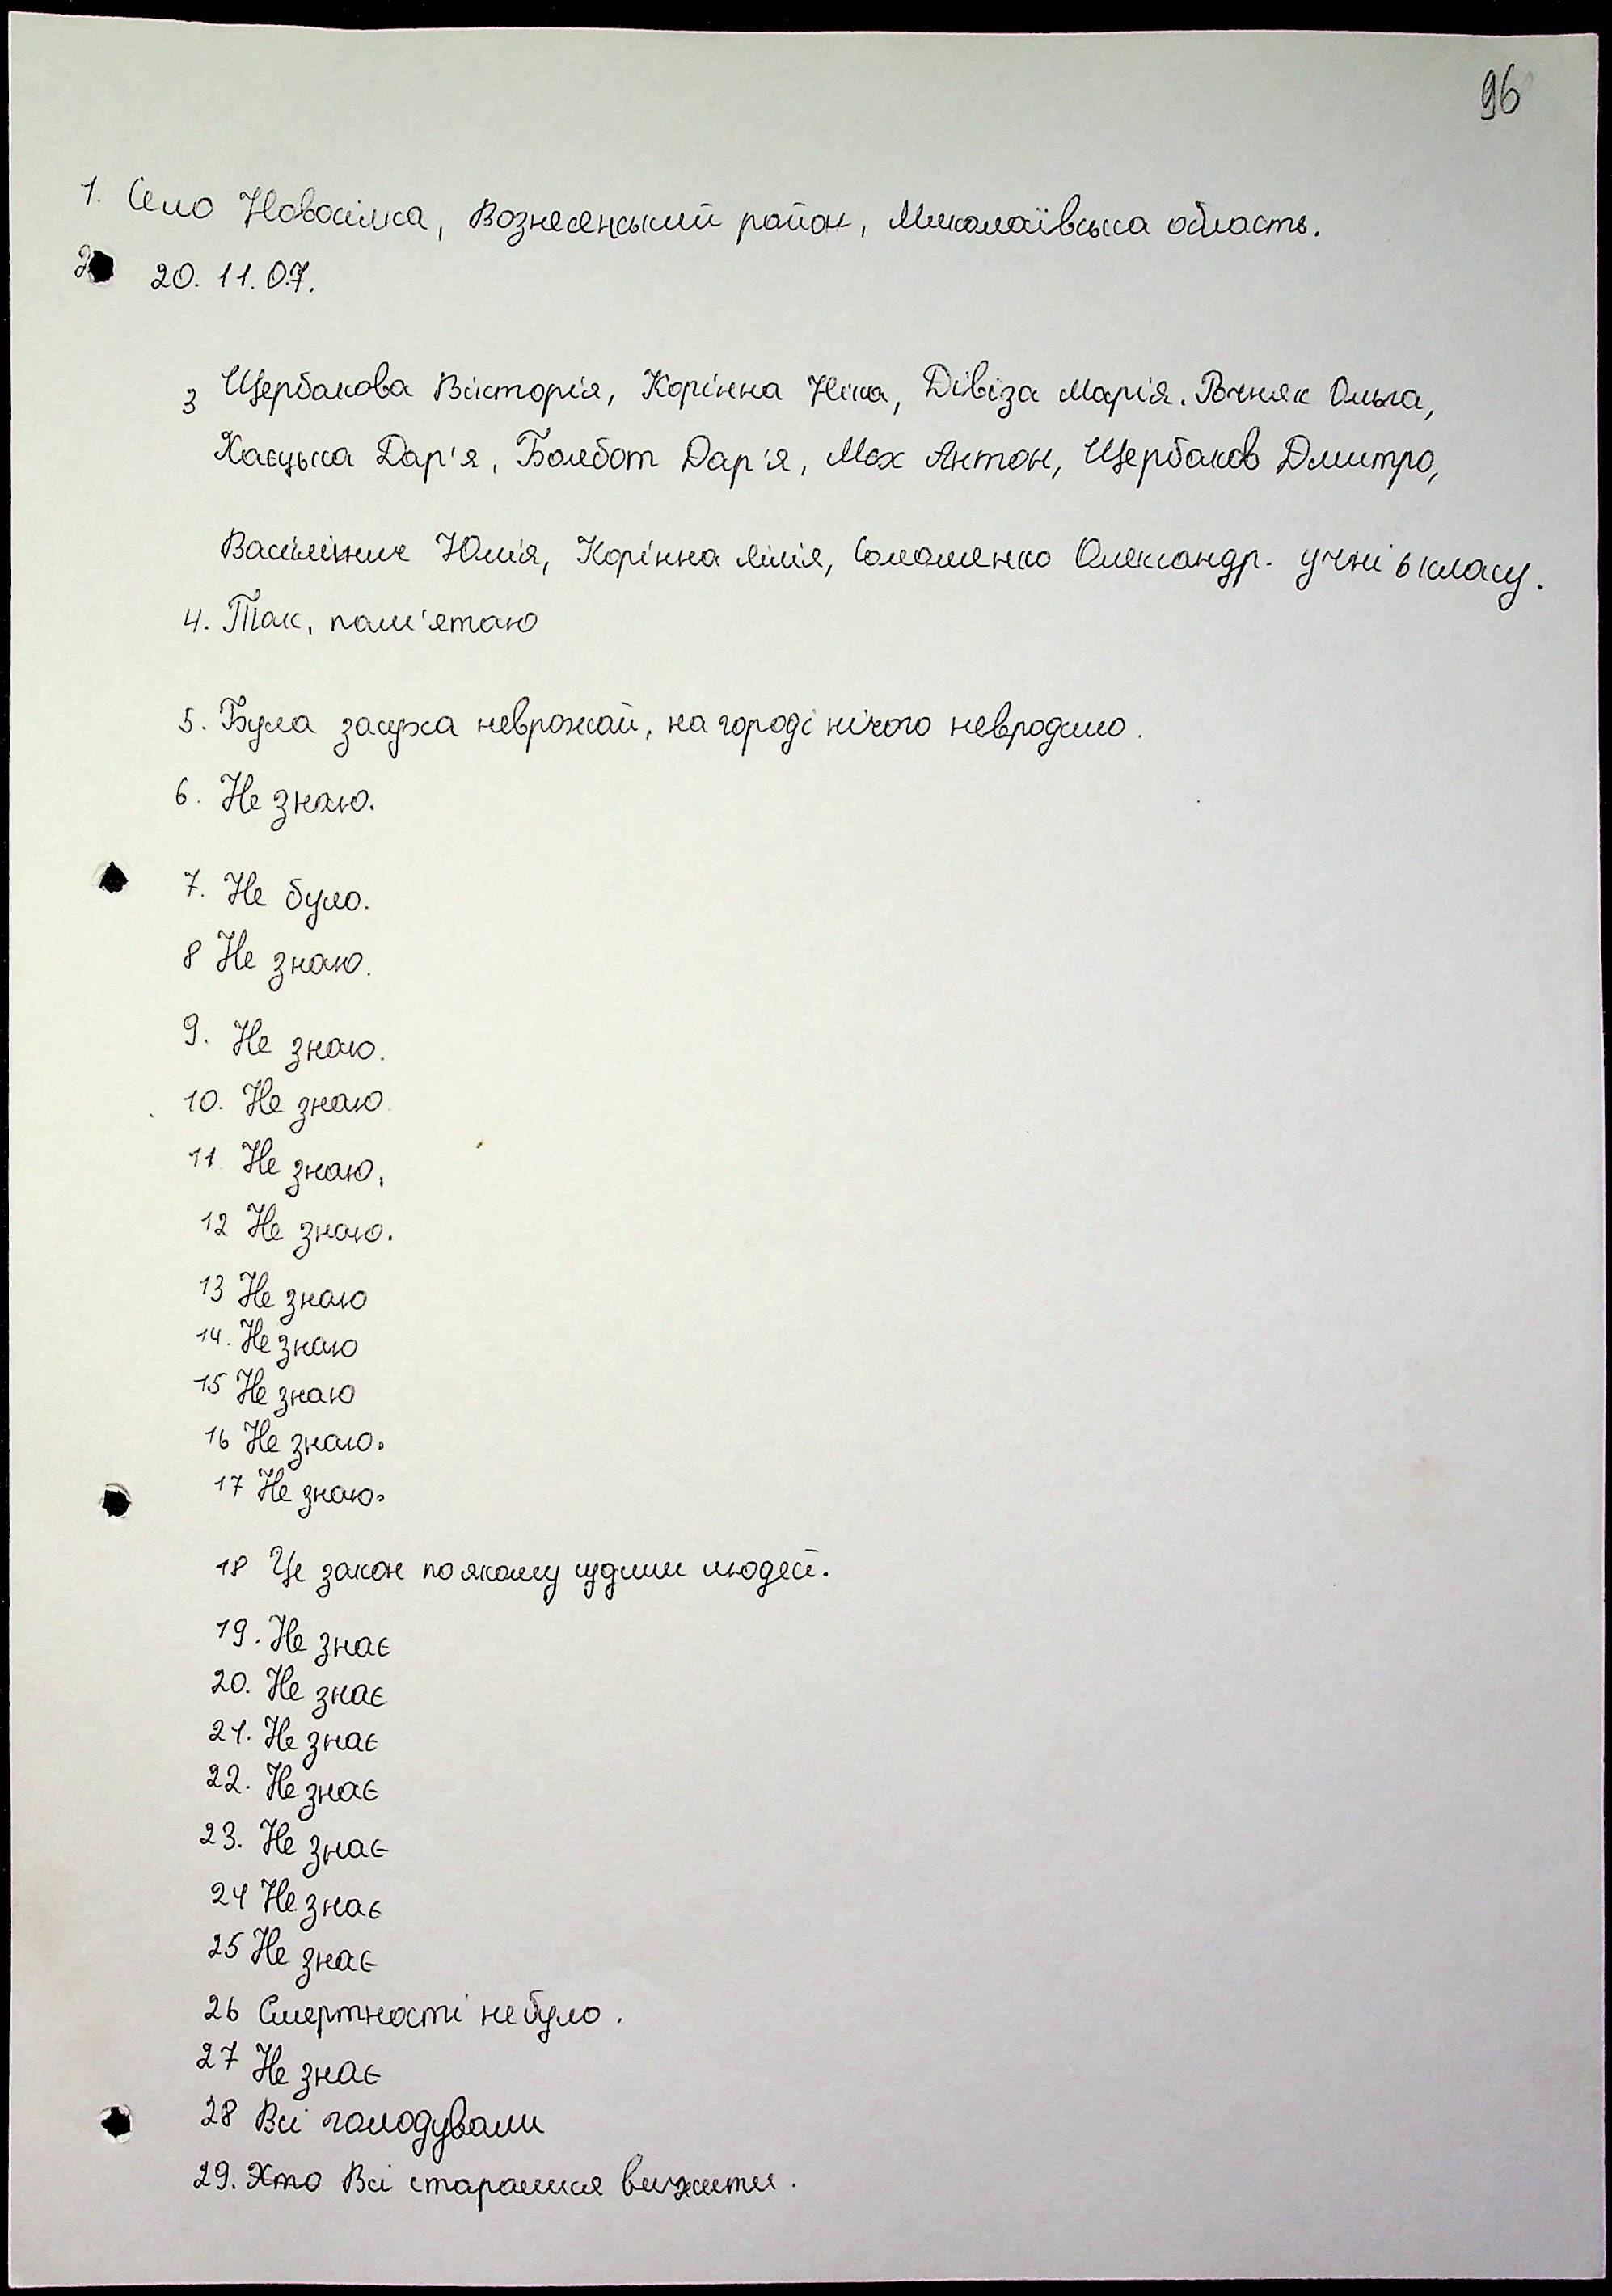 96
1. Село Новосілка, Вознесенський район, Миколаївська область.
2. 20. 11. 07.
3 Щербакова Вікторія, Корінна Ніка, Дівіза Марія. Ольга,
Хаєцька Дар'я, Болбот Дар'я, Мох Антон, Щербаков Дмитро,
Юлія, Корінна Лілія, Соломенко Олександр. учні 6 класу.
4. Так, пам'ятаю
5. Була засуха неврожай, на городі нічого невродило.
6. Не знаю.
7. Не було.
8 Не знаю.
9. Не знаю.
10. Не знаю
11 Не знаю.
12 Не знаю.
13 Не знаю
14. Не знаю
15 Не знаю
16 Не знаю.
17 Не знаю.
18 Це закон по якому судили людей.
19. Не знає
20. Не знає
21. Не знає
22. Не знає
23. Не знає
24 Не знає
25 Не знає
26 Смертності не було.
27 Не знає
28 Всі голодували
29. Хто Всі старалися вижити.